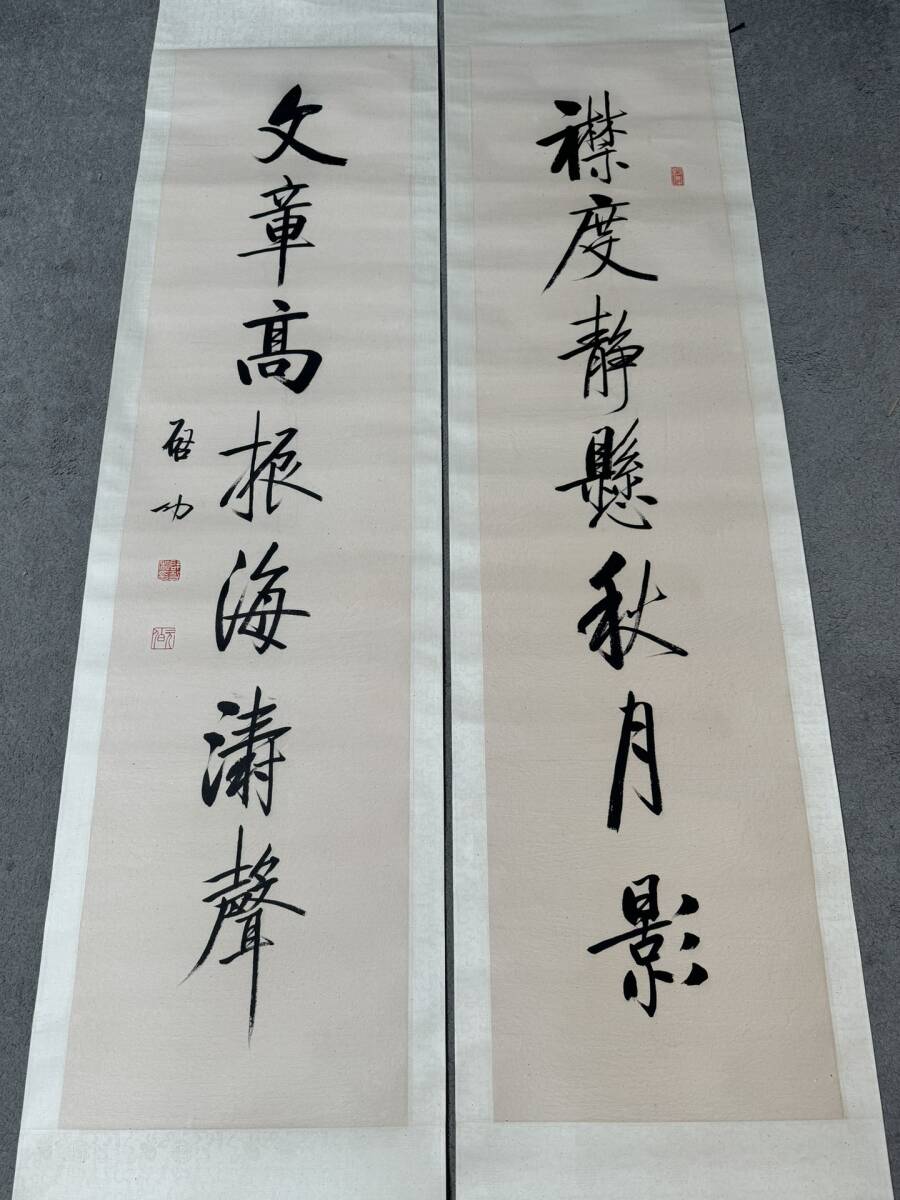 襟度静懸秋月影
文章高振海濤聲
啓功